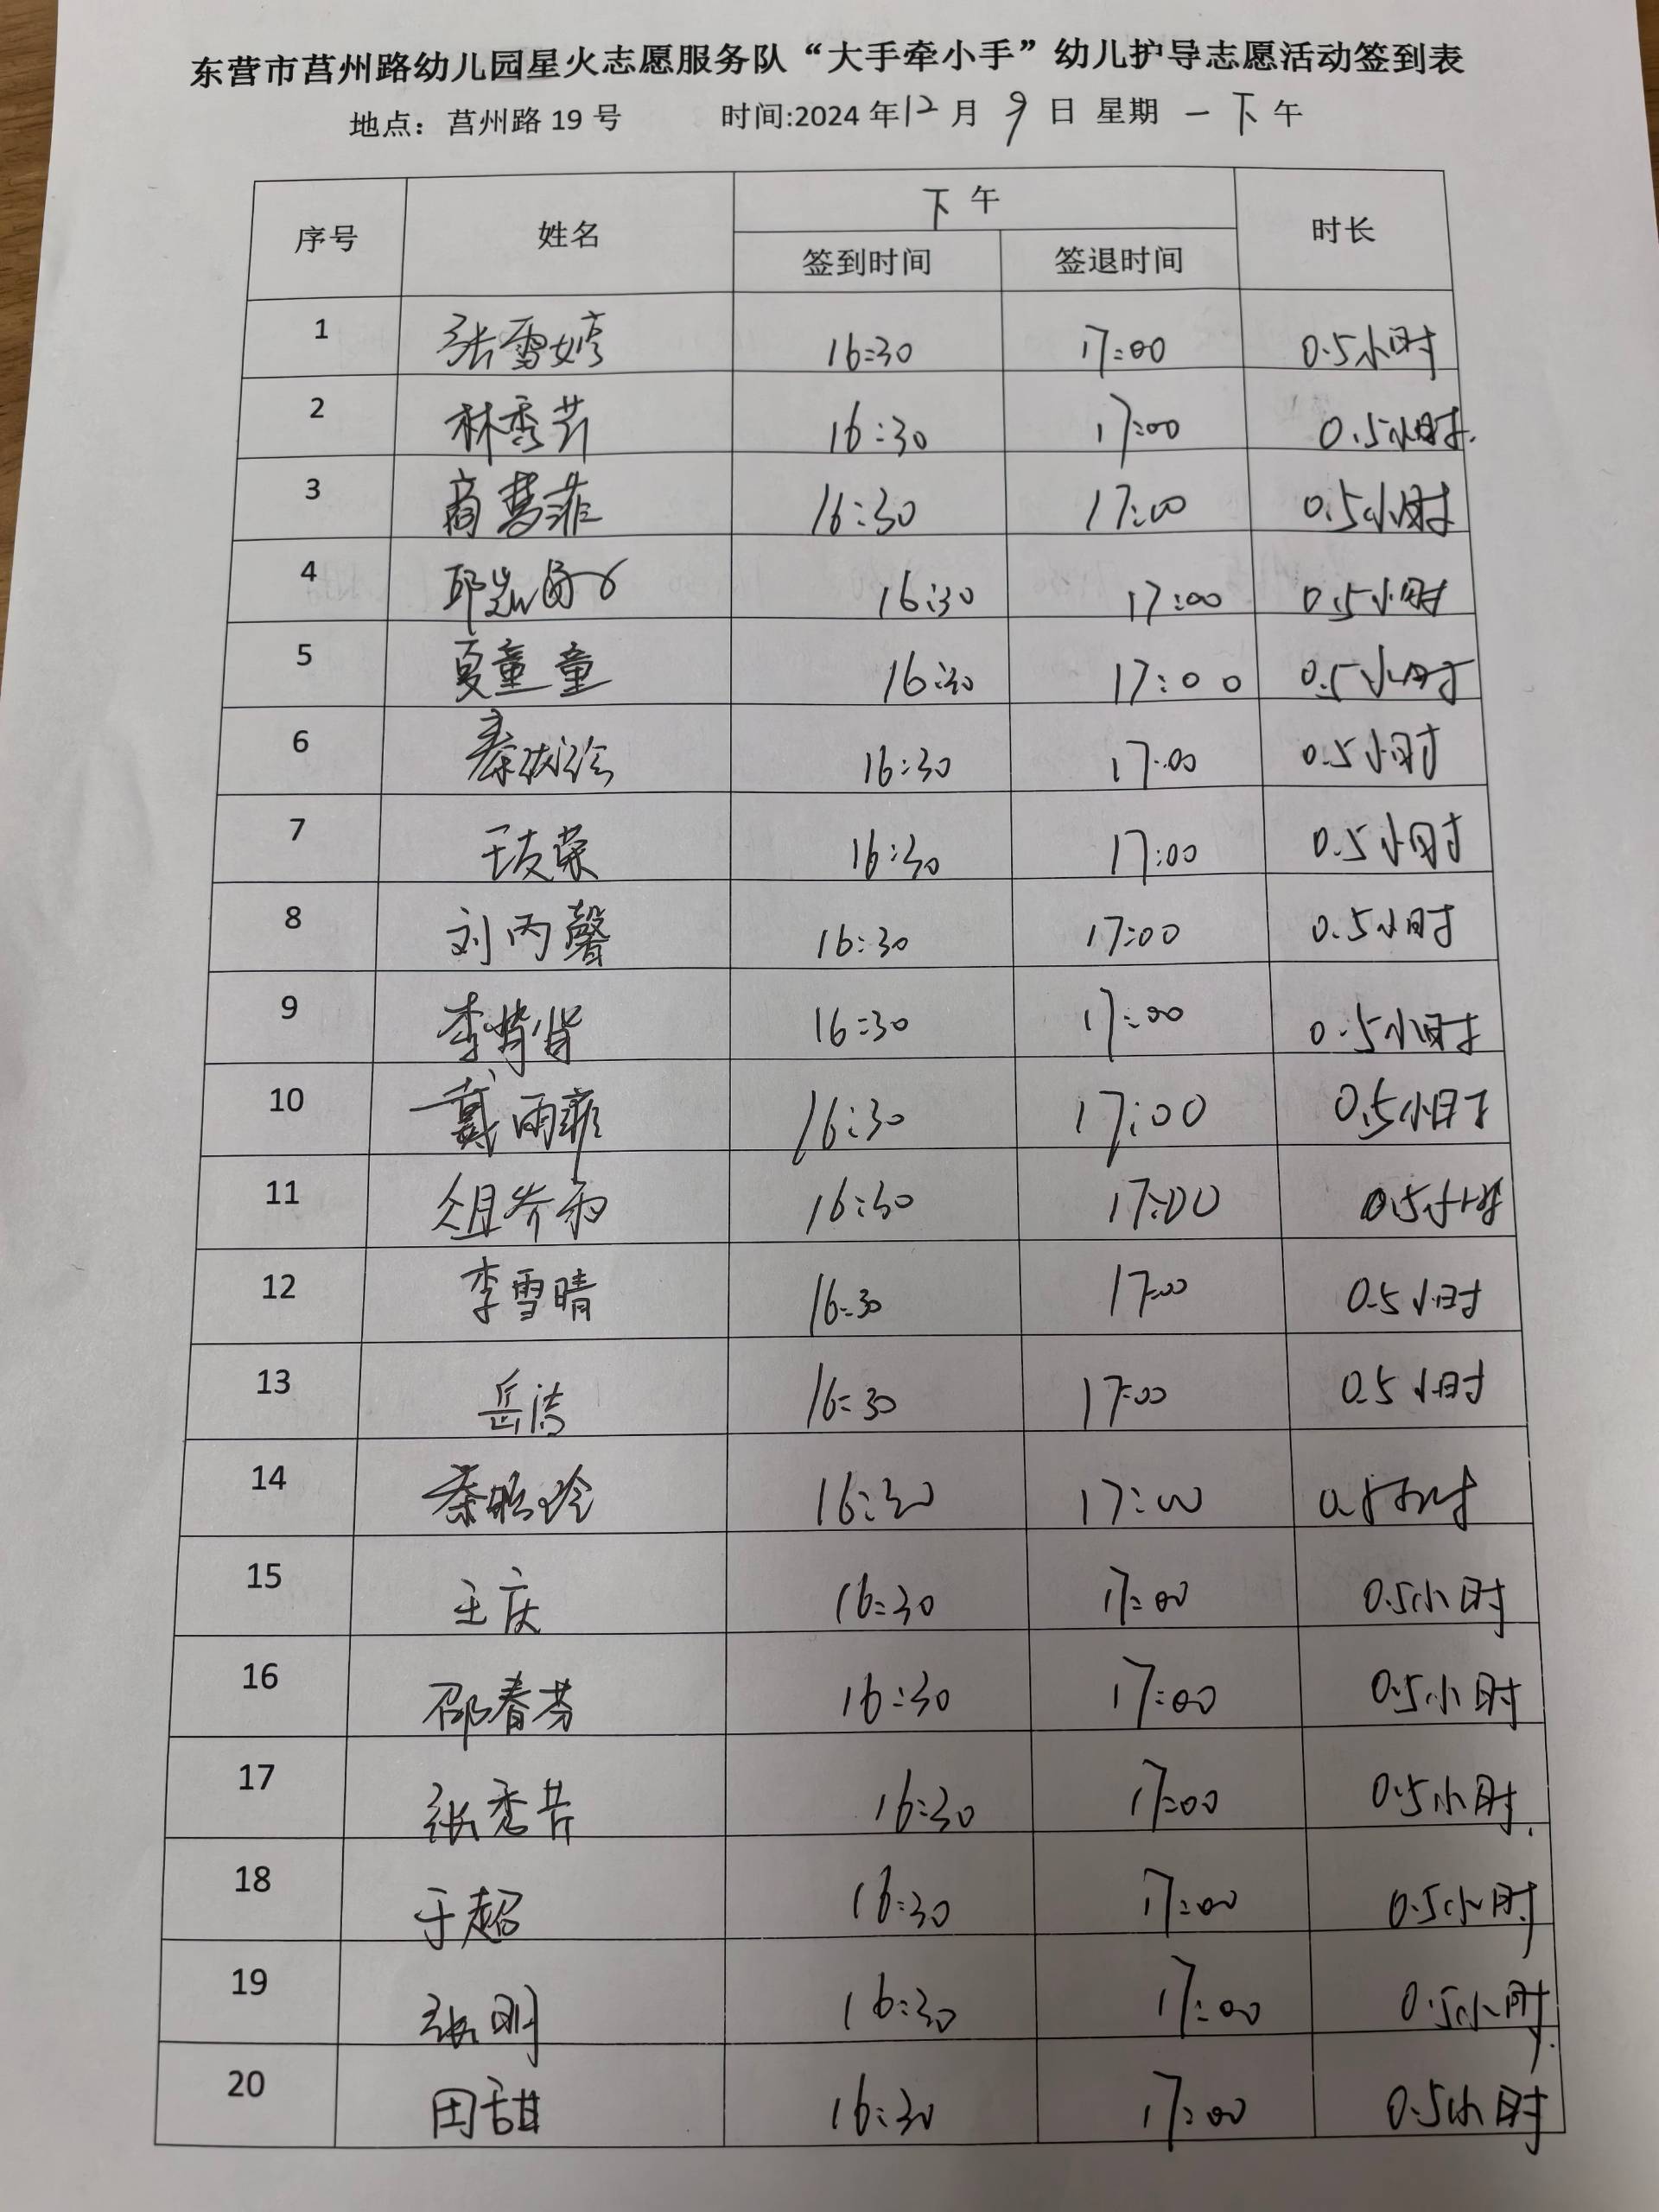 东营市莒州路幼儿园星火志愿服务队“大手牵小手”幼儿护导志愿活动签到表
地点：莒州路 19 号 时间:2024 年 12 月 9 日 星期 一 下 午
序号 姓名 下 午 时长
签到时间 签退时间
1 张雪婷 16:30 17:00 0.5小时
2 林秀芹 16:30 17:00 0.5小时.
3 商慧菲 16:30 17:00 0.5小时
4 16:30 17:00 0.5小时
5 夏童童 16:30 17:00 0.5小时
6 16:30 17:00 0.5小时
7 王友荣 16:30 17:00 0.5小时
8 刘丙馨 16:30 17:00 0.5小时
9 16:30 17:00 0.5小时
10 戴雨菲 16:30 17:00 0.5小时
11 16:30 17:00 0.5小时
12 李雪晴 16:30 17:00 0.5小时
13 岳洁 16:30 17:00 0.5小时
14 16:30 17:00 0.5小时
15 王庆 16:30 17:00 0.5小时
16 邵春芬 16:30 17:00 0.5小时
17 张秀芹 16:30 17:00 0.5小时.
18 于超 16:30 17:00 0.5小时
19 张刚 16:30 17:00 0.5小时.
20 田甜 16:30 17:00 0.5小时